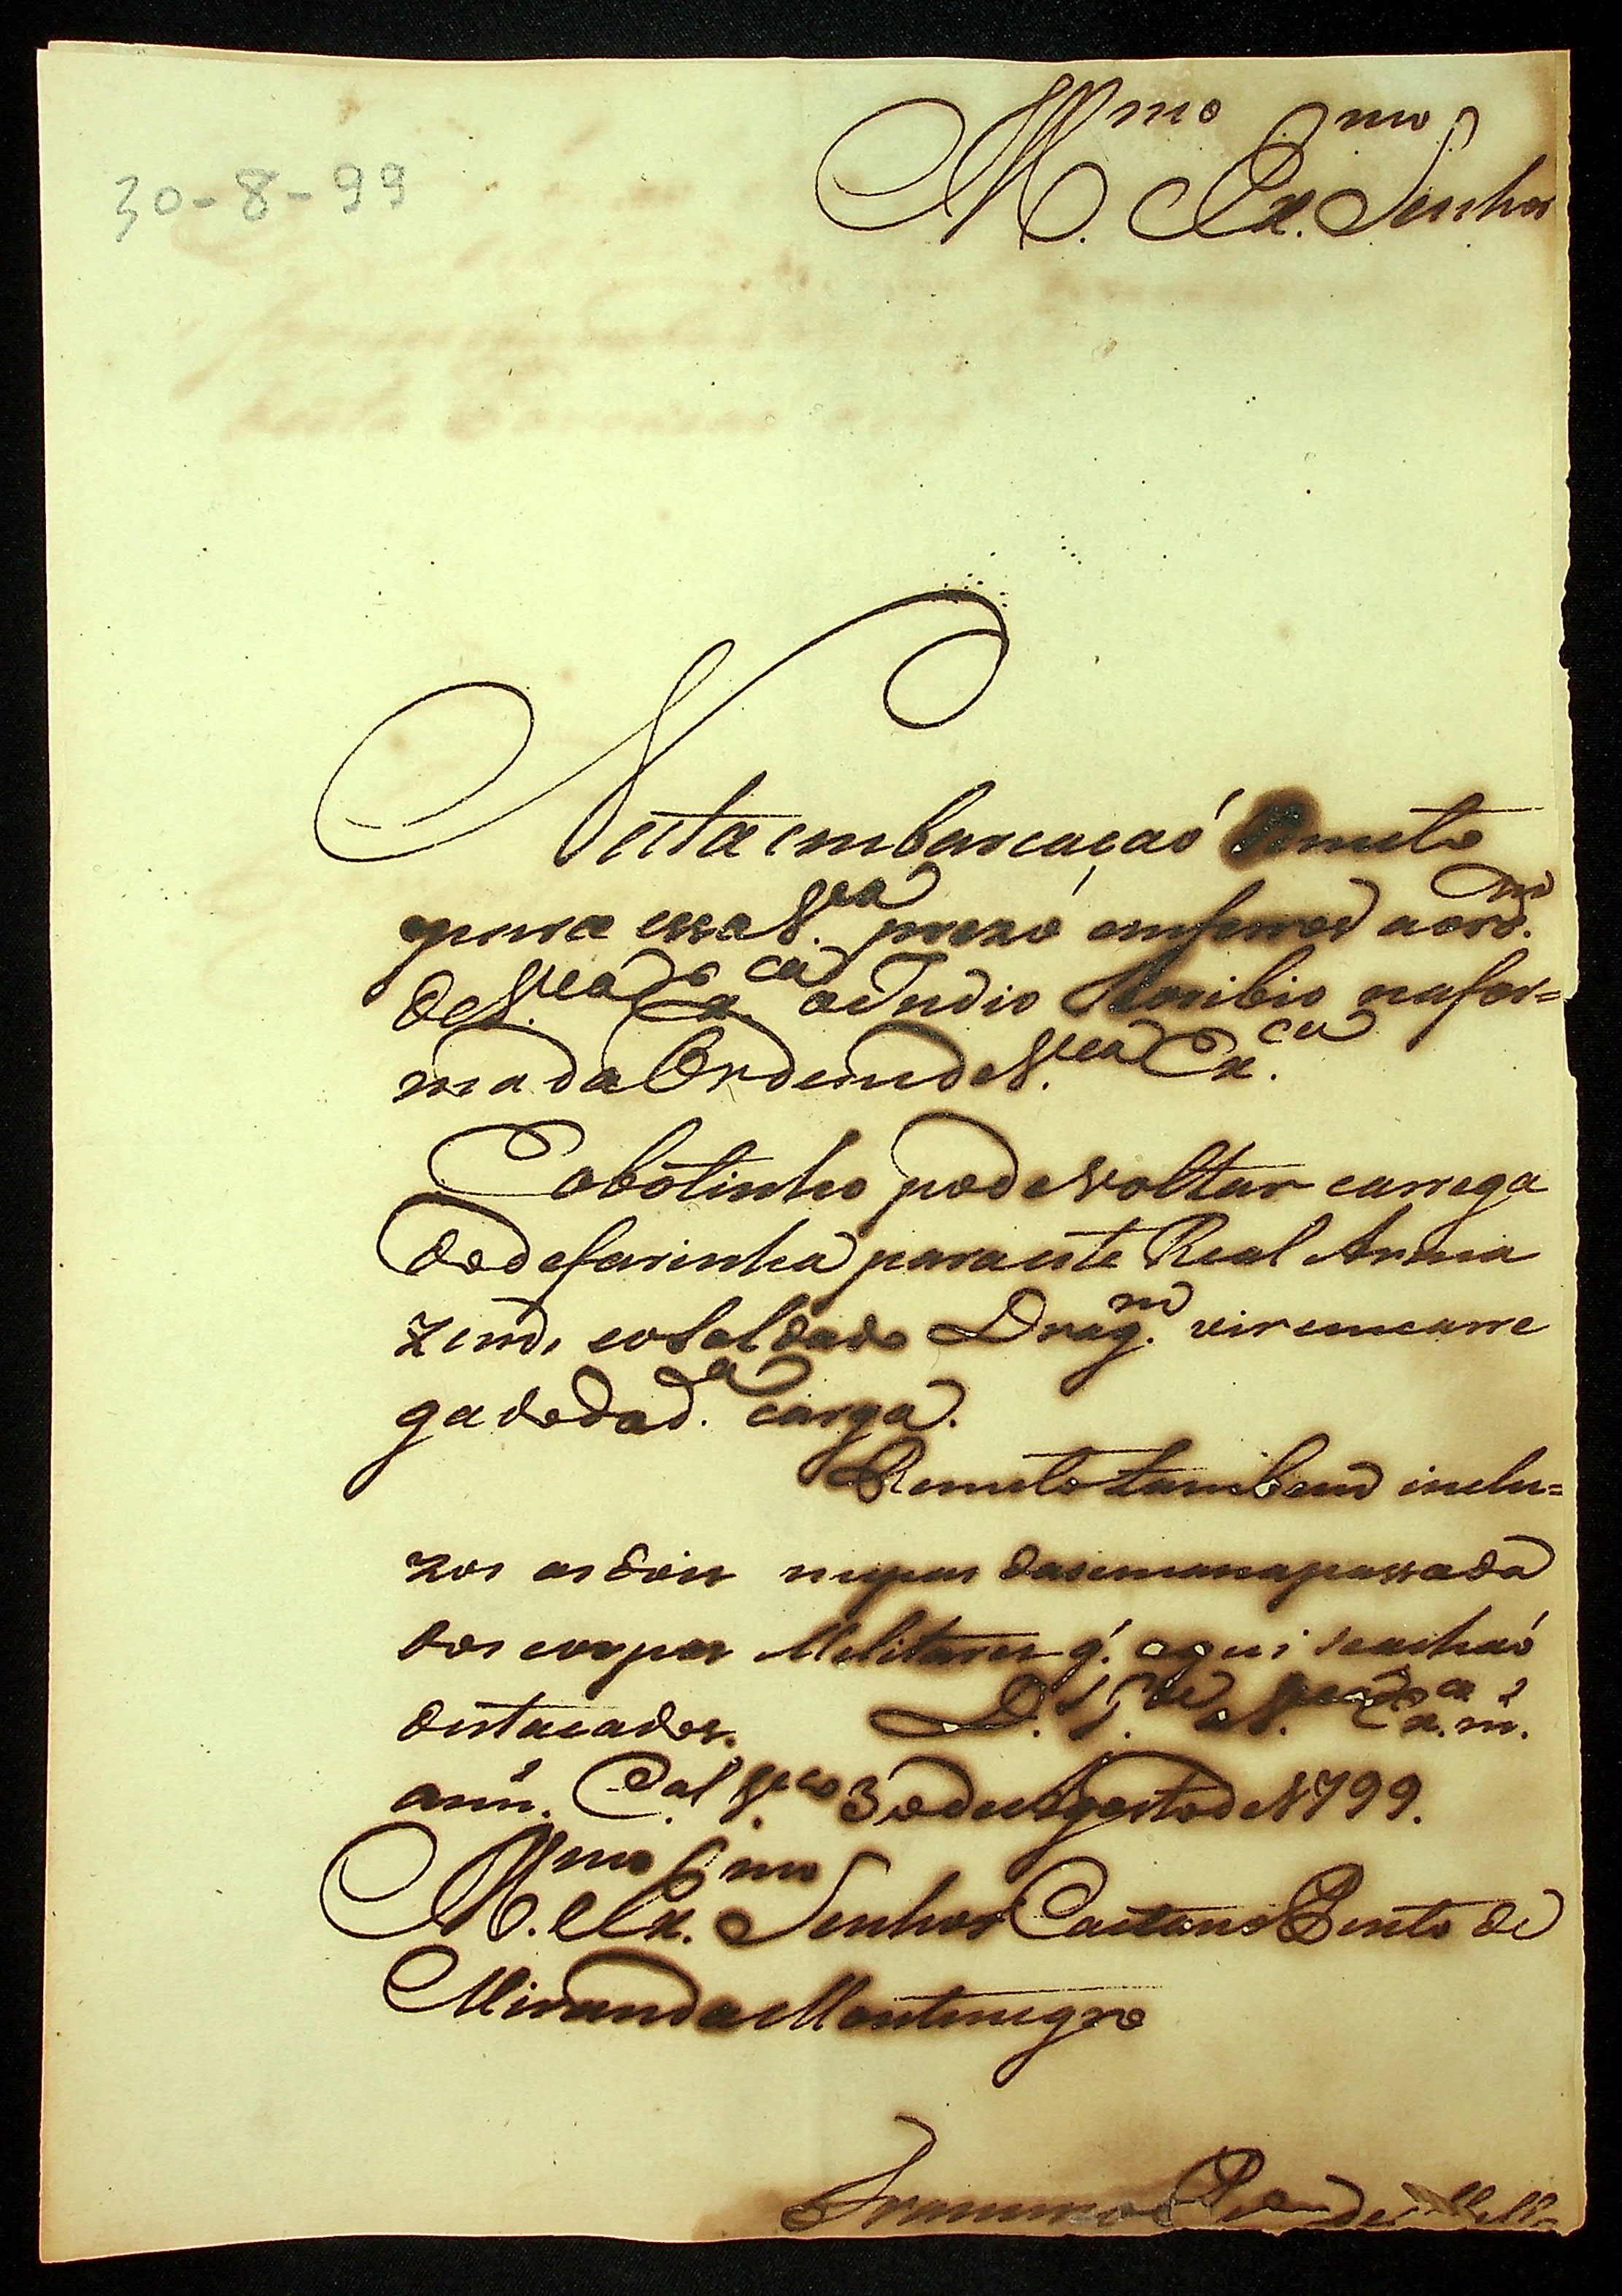 30-8-99
Ill.mo Ex.mo Senhor
Nesta embarcaçaó Remeto
para essa V.ea prezo em ferros a ord.m
de V.ea Ex.ca o Indio Toribio na for=
ma da Ordem de V.ea Ex.ca
O botinho pode voltar carrega
do de farinha para este Real Arma
zem, e o Soldado Drag.m vir emcarre
gado da d.a carga.
Remeto tambem inclu=
zos os dois mapas da semana passada
dos corpos Melitares q'. aqui se achaó
destacados. D. G.de a V.ea Ex.ca m.s
ann.s Cal V.co 30 de Agosto de 1799.
Ill.mo Ex.mo Senhor Caetano Pinto de
Miranda Montenegro
Francisco